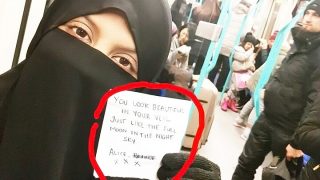 YOU LOOK BEAUTIFUL
IN YOUR VEIL
JUST LIKE THE FULL
MOON IN THE NIGHT
SKY
ALICE,
X X X